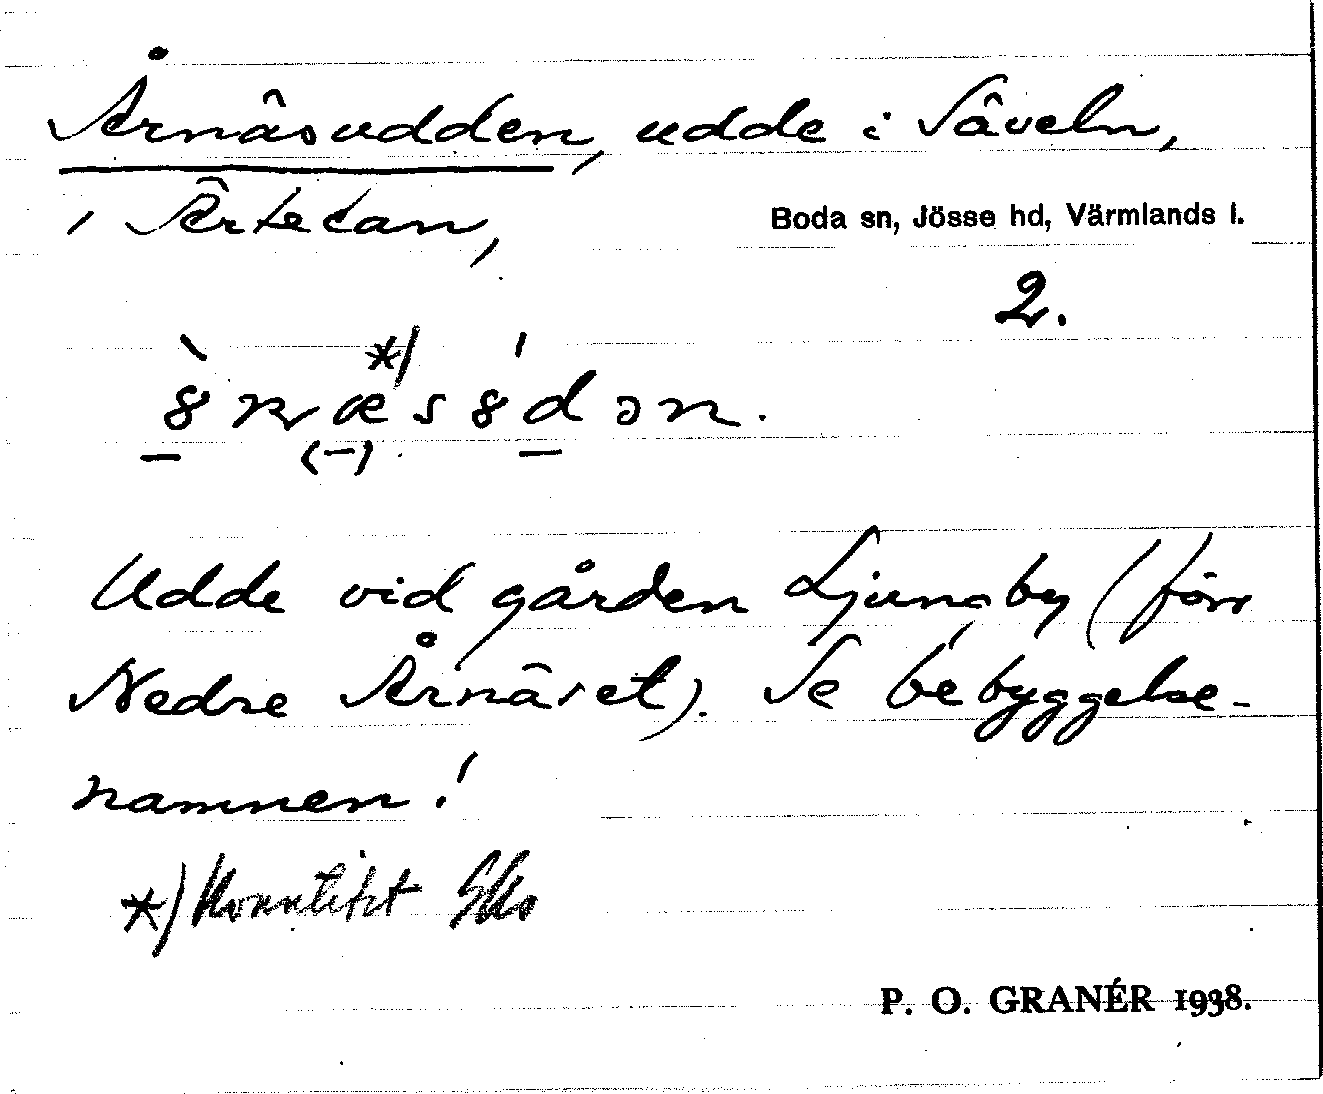 Årnäsudden, udde i Säveln,
i Ärtetan,
Boda sn, Jösse hd, Värmlands l.
2.
*)
Udde vid gården Ljungby (förr
Nedre Årnäset). Se bebyggelse-
namnen!
*)
P. O. GRANÉR 1938.